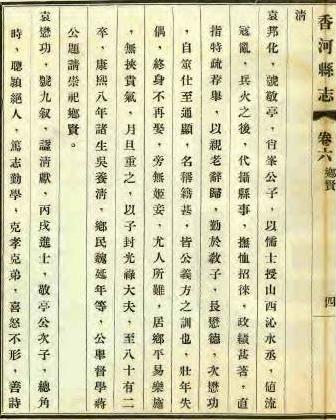 香河縣志
卷六
鄉賢
四
清
袁邦化，號敬亭，肖峯公子，以儒士授山西沁水丞，値流
寇亂，兵火之後，代攝縣事，撫恤招徠，政績甚著，直
指特疏荐舉，以親老辭歸，勤於敎子，長懋德，次懋功
，自筮仕至通顯，名稱籍甚，皆公義方之訓也，壯年失
偶，終身不再娶，旁無姬妾，尤人所難，居鄉平易樂施
，無挾貴氣，月旦重之，以子封光祿大夫，至八十有二
卒，康熙八年諸生吳養淸，鄉民魏延年等，公舉督學蔣
公題請崇祀鄉賢。
袁懋功，號九叙，諡清獻，丙戌進士，敬亭公次子，總角
時，聰穎絕人，篤志勤學，克孝克弟，喜怒不形，善詩